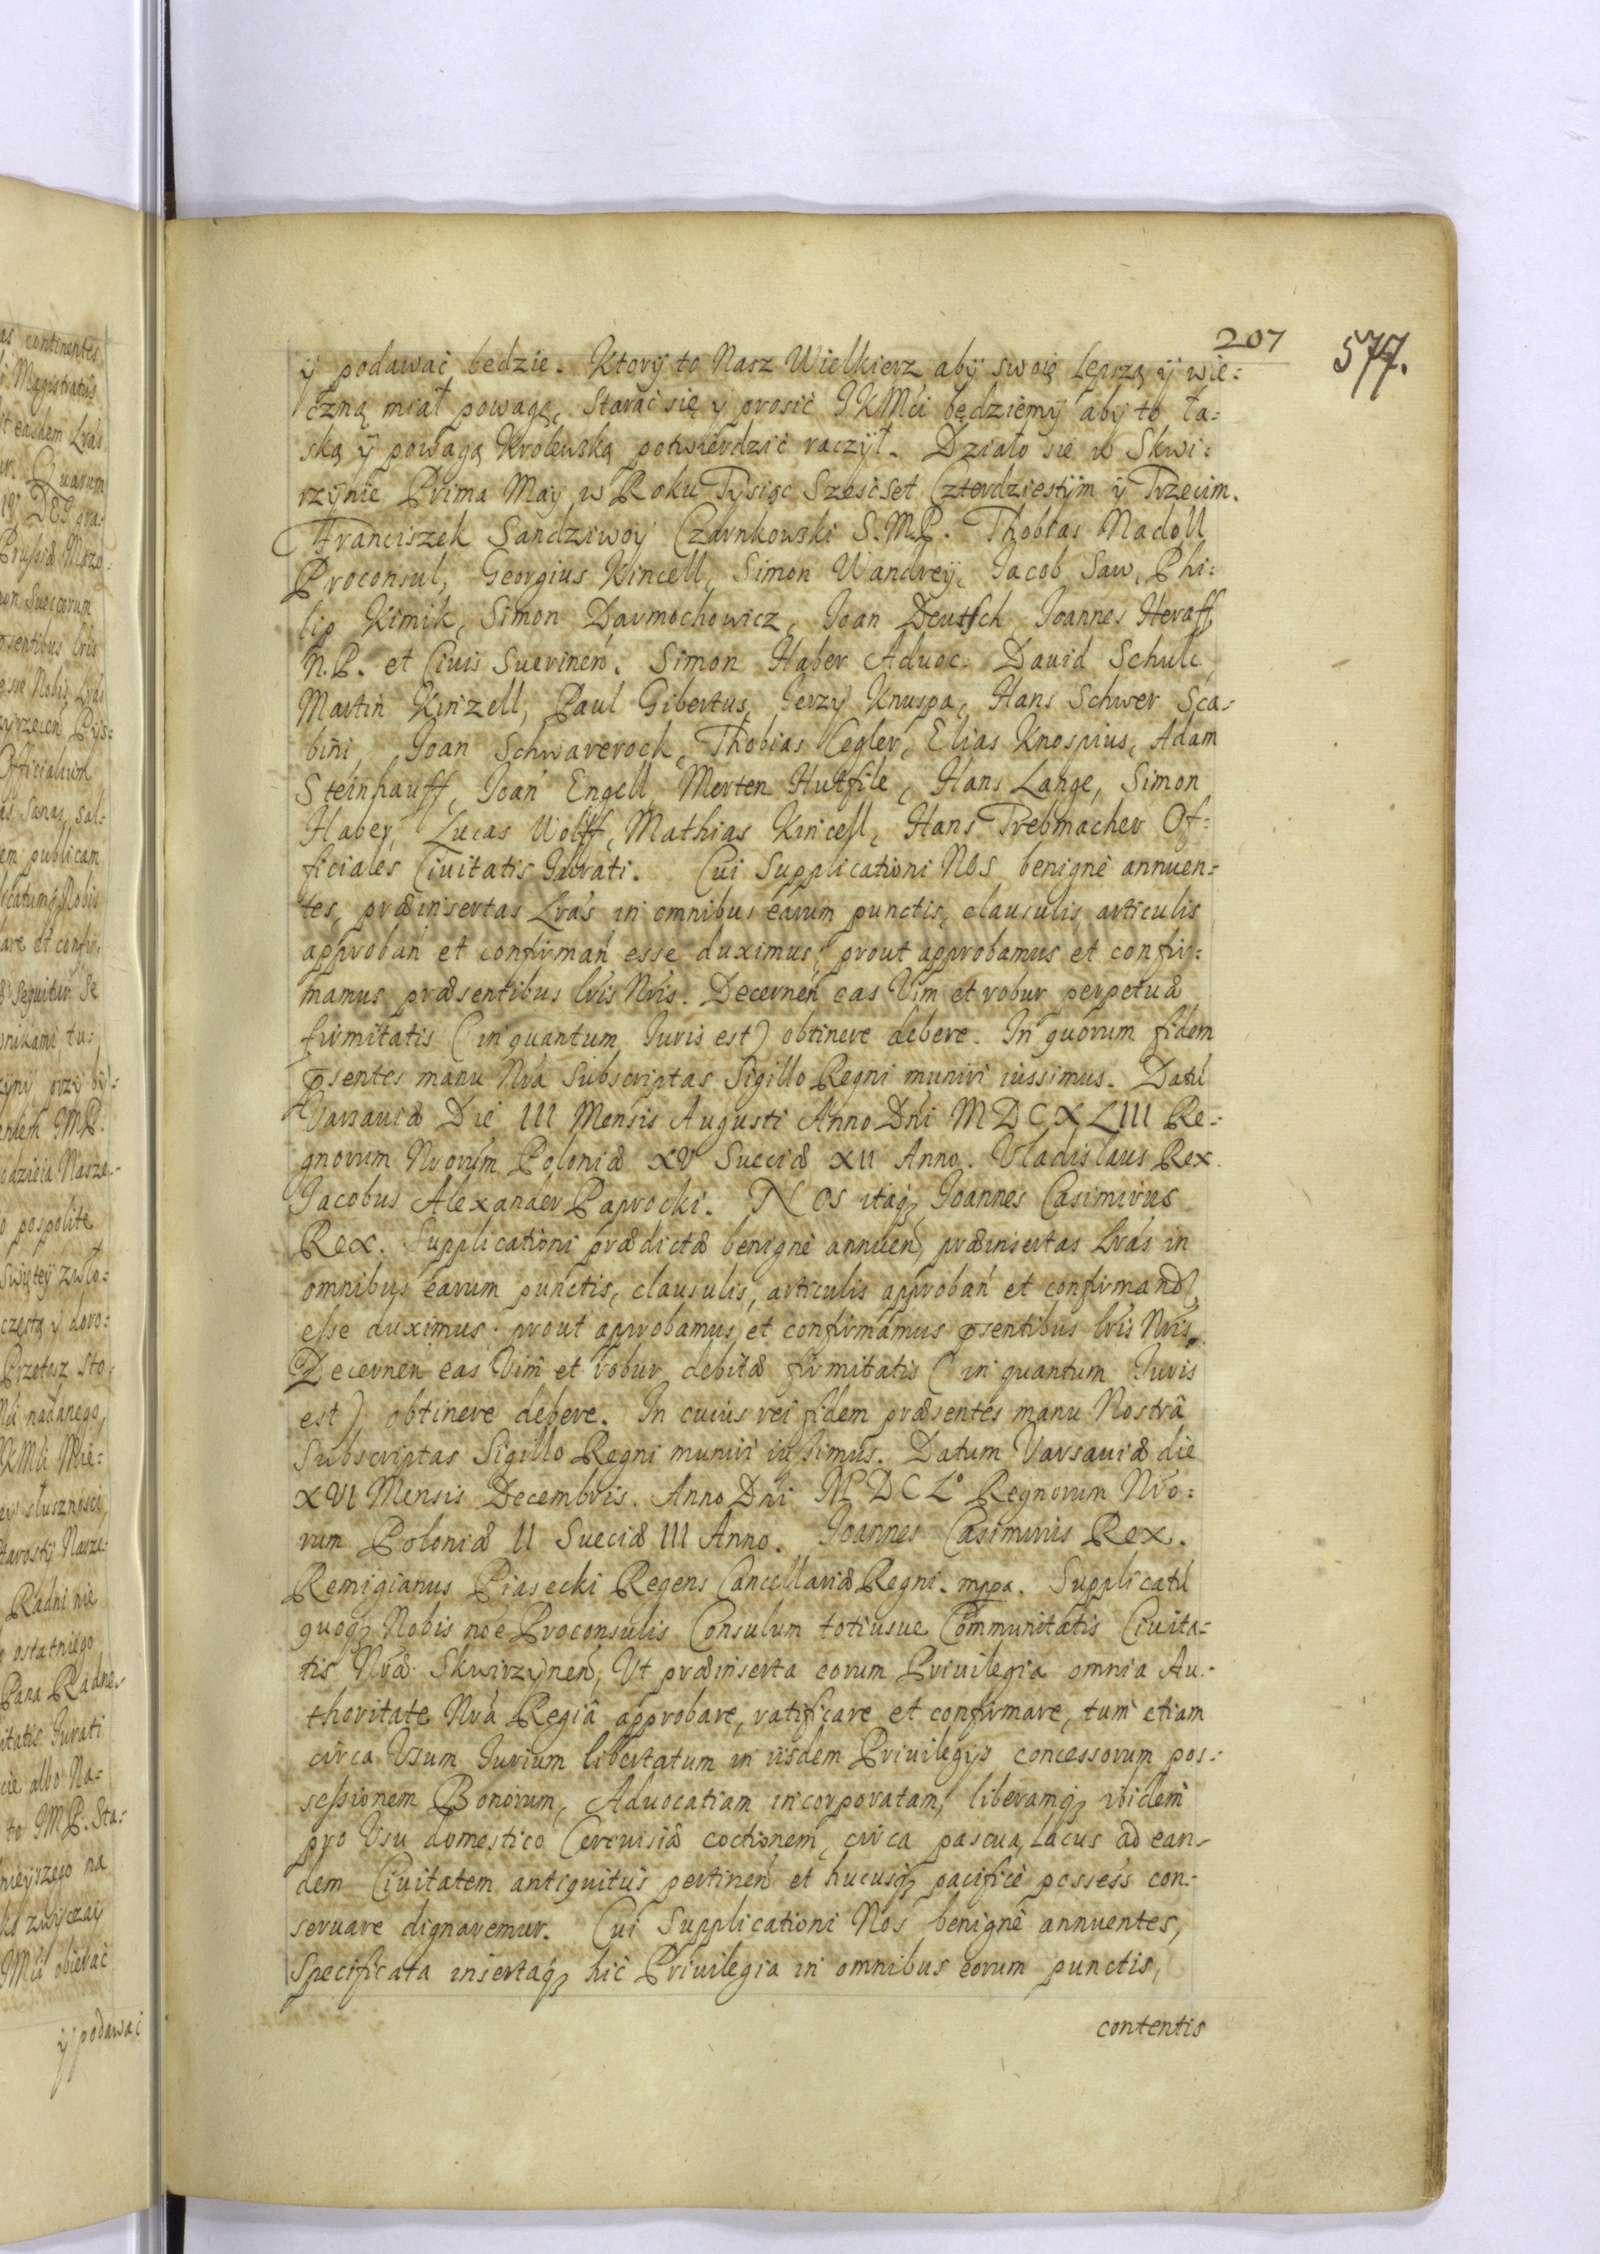 207
577.
ÿ podawać bedzie. Ktorÿ to Nasz Wielkierz abÿ swoię Lepszą ÿ wie:
czną miał powagę, Starać się y prosić JKMći będziemÿ abÿ to ła:
ską ÿ powagą Krolewską potwierdzić raczÿł. Działo się w Skwi:
rzÿnie Prima May w Roku Tysiąc Szescset Czterdziestÿm ÿ Trzecim.
Franciszek Sandziwoÿ Czarnkowski S.M.P. Thobias Nadoll
Proconsul, Georgius Kincell, Simon Wandreÿ, Jacob Saw, Phi:
lip Kimik, Simon Darmochowicz, Joan Deutsch Joannes Heraff
N.P. et Ciuis Suerineń. Simon Haber Aduoc. Dauid Schulc,
Martin Kinzell, Paul Gibertus, Jerzy Knuspa, Hans Schwer Sca-
bini, Joan Schwarerock, Thobias Cegler, Elias Knospius, Adam
Steinhauff, Joan Engell, Merten Hutfile, Hans Lange, Simon
Haber, Lucas Wolff, Mathias Kincell, Hans Trebmacher Of:
ficiales Ciuitatis Iurati. Cui Supplicationi NOS benignè annuen:
tes, præinsertas Lrás in omnibus earum punctis, clausulis, articulis
approbań et confirmań esse duximus, prout approbamus et confir:
mamus præsentibus lris Nris. Decerneń eas Vim et robur perpetuæ
firmitatis (in quantum Iuris est) obtinere debere. In quorum fidem
pśentes manu Nrá Subscriptas Sigillo Regni muniri iussimus. Datú
Varsauiæ Die III Mensis Augusti Anno Dńi MDCXLIII Re-
gnorum Nrorum Poloniæ XV Sueciæ XII Anno. Vladislaus Rex.
Jacobus Alexander Paprocki. NOS itaq, Joannes Casimirus
Rex. Supplicationi prædictæ benignè annueń, præinsertas Lrás in
omnibus earum punctis, clausulis, articulis approbań et confirmand,
esse duximus, prout approbamus et confirmamus pśentibus lris Nris.
Decerneń eas Vim et robur debitæ firmitatis (in quantum Iuris
est) obtinere debere. In cuius rei fidem præsentes manu Nostrâ
Subscriptas Sigillo Regni muniri iussimus. Datum Varsauiæ die
XVI Mensis Decembris. Anno Dńi MDCL° Regnorum Nro:
rum Poloniæ II Sueciæ III Anno. Joannes Casimirus Rex.
Remigianus Piasecki Regens Cancellariæ Regni. mppa. Supplicatú
quoq, Nobis noe Proconsulis Consulum totiusue Communitatis Ciuita-
tis Nræ Skwirzyneń, Vt præinserta eorum Priuilegia omnia Au-
thoritate Nrá Regiâ approbare, ratificare et confirmare, tum etiam
circa Vsum Iurium libertatum in iisdem Priuilegijs concessorum pos:
sessionem Bonorum, Aduocatiam incorporatam, liberamq, ibidem
pro Vsu domestico Cereuisiæ coctionem, circa pascua, Lacus ad ean-
dem Ciuitatem antiquitus pertineń et hucusq, pacificè possess con-
seruare dignaremur. Cui Supplicationi Nos benignè annuentes,
Specificata insertaq, hic Priuilegia in omnibus eorum punctis,
contentis